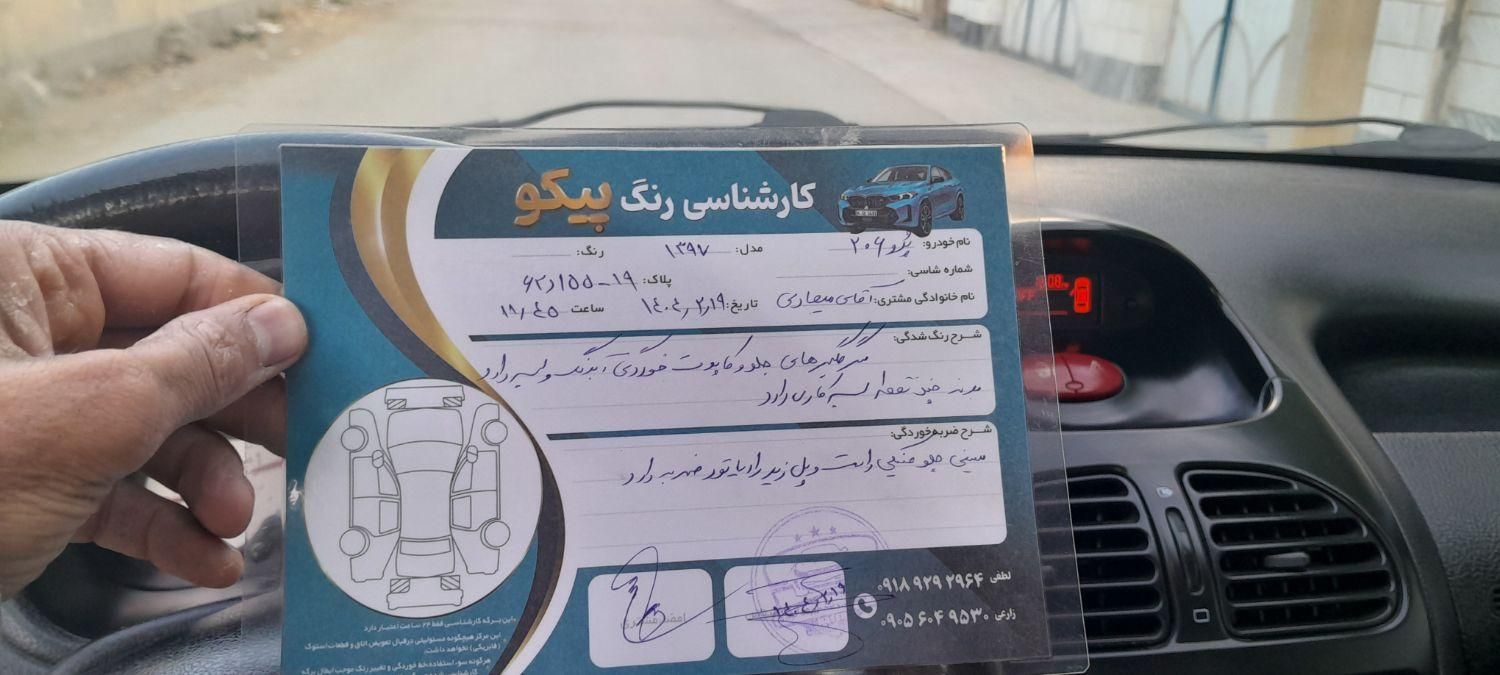 کارشناسی رنگ پیکو
نام خودرو: پژو ۲۰۶ مدل: ۱۳۹۷ رنگ:
شماره شاسی: پلاک: ۱۹-۱۵۵د۶۲
نام خانوادگی مشتری: آقای تاریخ: ۱۴۰۴,۲,۱۹ ساعت ۱۸,۴۵
شرح رنگ شدگی:
گلگیرهای جلو و کاپوت خوردگی آبرنگ و لیسه دارد
بدنه چند نقطه لیسه کاری دارد
شرح ضربه خوردگی:
سینی جلو منتهی راست و پل زیر رادیاتور ضربه دارد
لطفی ۰۹۱۸ ۹۲۹ ۲۹۶۴
زارعی ۰۹۰۵ ۶۰۴ ۹۵۳۰
۱۴۰۴,۲,۱۹
امضا مشتری
این برگه کارشناسی فقط ۲۴ ساعت اعتبار دارد
این مرکز هیچگونه مسئولیتی درقبال تعویض اتاق و قطعات استوک
(فابریکی) نخواهد داشت.
هرگونه سوء استفاده،خط خوردگی و تغییر رنگ موجب ابطال برگه